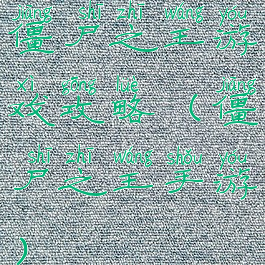 jiāng shī zhī wáng yóu
僵尸之王游
xì gōng lüè jiāng
戏攻略（僵
shī zhī wáng shǒu yóu
尸之王手游
）